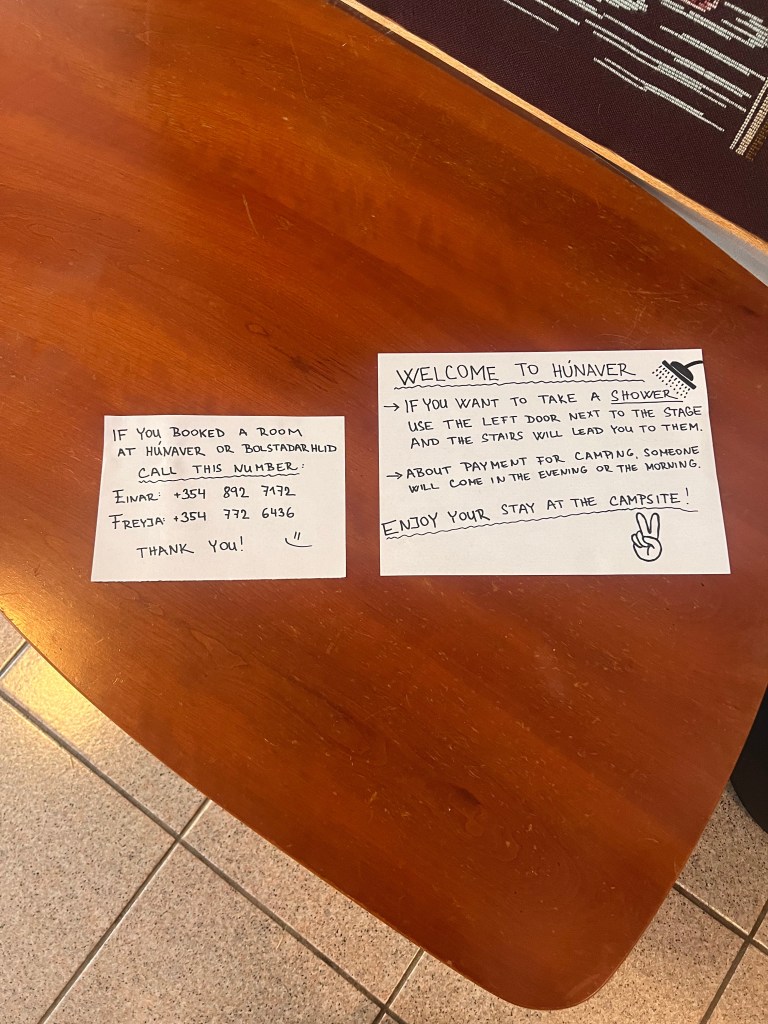 IF YOU BOOKED A ROOM
AT HÚNAVER OR BOLSTADARHLID
CALL THIS NUMBER:
EINAR: +354 892 7172
FREYJA: +354 772 6436
THANK YOU!
WELCOME TO HÚNAVER
→ IF YOU WANT TO TAKE A SHOWER
USE THE LEFT DOOR NEXT TO THE STAGE
AND THE STAIRS WILL LEAD YOU TO THEM.
→ ABOUT PAYMENT FOR CAMPING, SOMEONE
WILL COME IN THE EVENING OR THE MORNING.
ENJOY YOUR STAY AT THE CAMPSITE!